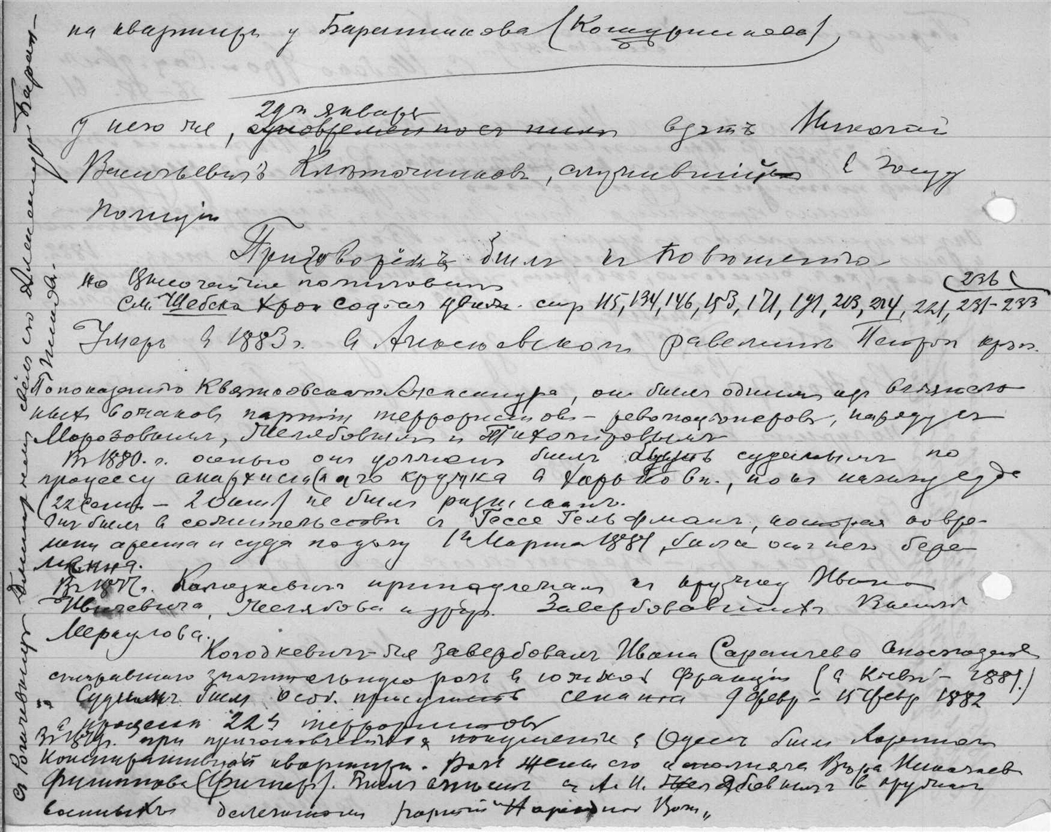 на квартире у Баранникова (Кошурникова)
29го января
у него же, одновременно с ним взятъ Николай
Васильевичъ Клеточниковъ, служившій в Госуд
полиціи
Приговорёнъ былъ къ повешенію
но Высочайше помилованъ
236
См. Шебеко Хрон соц-рев движ. стр 115, 134, 146, 153, 171, 191, 213, 214, 221, 231-233
Умеръ в 1883 г. в Алексеевскомъ равелинѣ Петроп креп.
По показанію Квятковскаго Александра, он был одним из вліятель
ных вожаков партіи террористов-революціонеров, наряду с
Морозовым, Желябовым и Тихомировым
В 1880. г. осенью он должен был быть судимым по
процессу анархистскаго кружка в Харькове, но къ началу суда
(22 сент - 2 окт) не был разыскан.
Он был в сожительстве с Гессе Гельфман, которая во вре-
мени ареста и суда по делу 1го Марта 1881, была от него бере
менна.
В 1877 г. Колодкевич принадлежал к кружку Ивана
Ивичевича, Желябова и друг. Завербовавших Василія
Меркулова.
Колодкевич-же завербовал Ивана Саранчева впоследствіи
игравшаго значительную роль в южной фракціи (в Кіеве - 1881.)
Судим был Особ. присутств сената 9 февр - 15 февр 1882
в процессе 22х террористов
В 1879 г. при приготовленіях покушенія в Одессе был хозяином
Конспиративной квартиры. Роль жены его исполняла Вера Николаев
Филиппова (Фигнер). Был вместе с А. И. Желябовым в кружке
военных делегатом партіи "Народной Воли"
с Рогачевицк Владимиром свёл его Александр Баран-
никовъ.